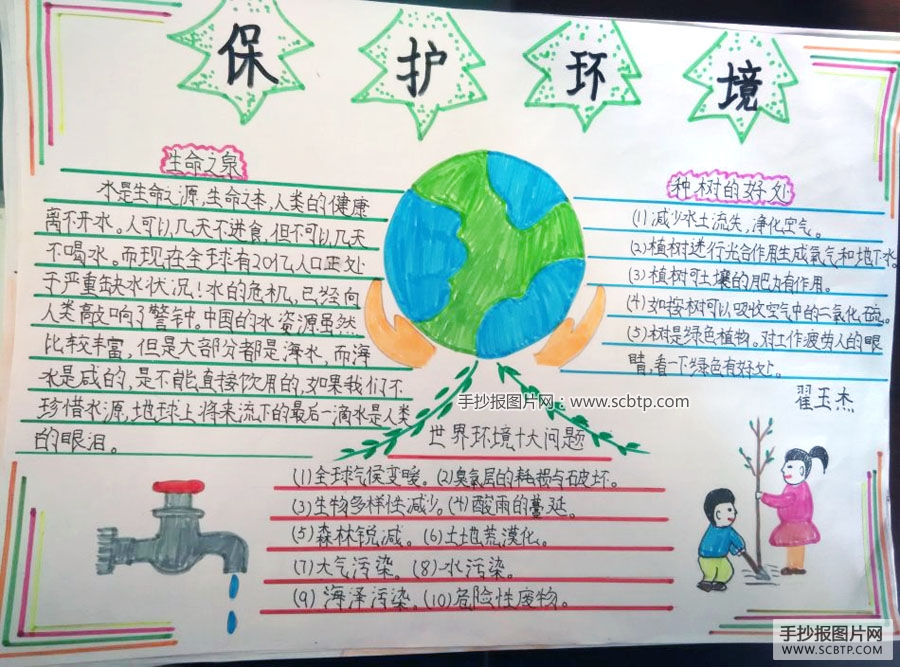 保护环境
生命之泉
水是生命之源,生命之本,人类的健康
离不开水。人可以几天不进食,但不可以几天
不喝水。而现在全球有20亿人口正处
于严重缺水状况!水的危机,已经向
人类敲响了警钟。中国的水资源虽然
比较丰富,但是大部分都是海水,而海
水是咸的,是不能直接饮用的,如果我们不
珍惜水源,地球上将来流下的最后一滴水是人类
的眼泪。
种树的好处
(1)减少水土流失,净化空气。
(2)植树进行光合作用生成氧气和地下水。
(3)植树可土壤的肥力有作用。
(4)如桉树可以吸收空气中的二氧化硫。
(5)树是绿色植物。对工作疲劳人的眼
睛,看一下绿色有好处。
翟玉杰
手抄报图片网:www.scbtp.com
世界环境十大问题
(1)全球气候变暖。(2)臭氧层的耗损与破坏。
(3)生物多样性减少。(4)酸雨的蔓延。
(5)森林锐减。(6)土地荒漠化。
(7)大气污染。(8)水污染。
(9)海泽污染。(10)危险性废物。
手抄报图片网
WWW.SCBTP.COM